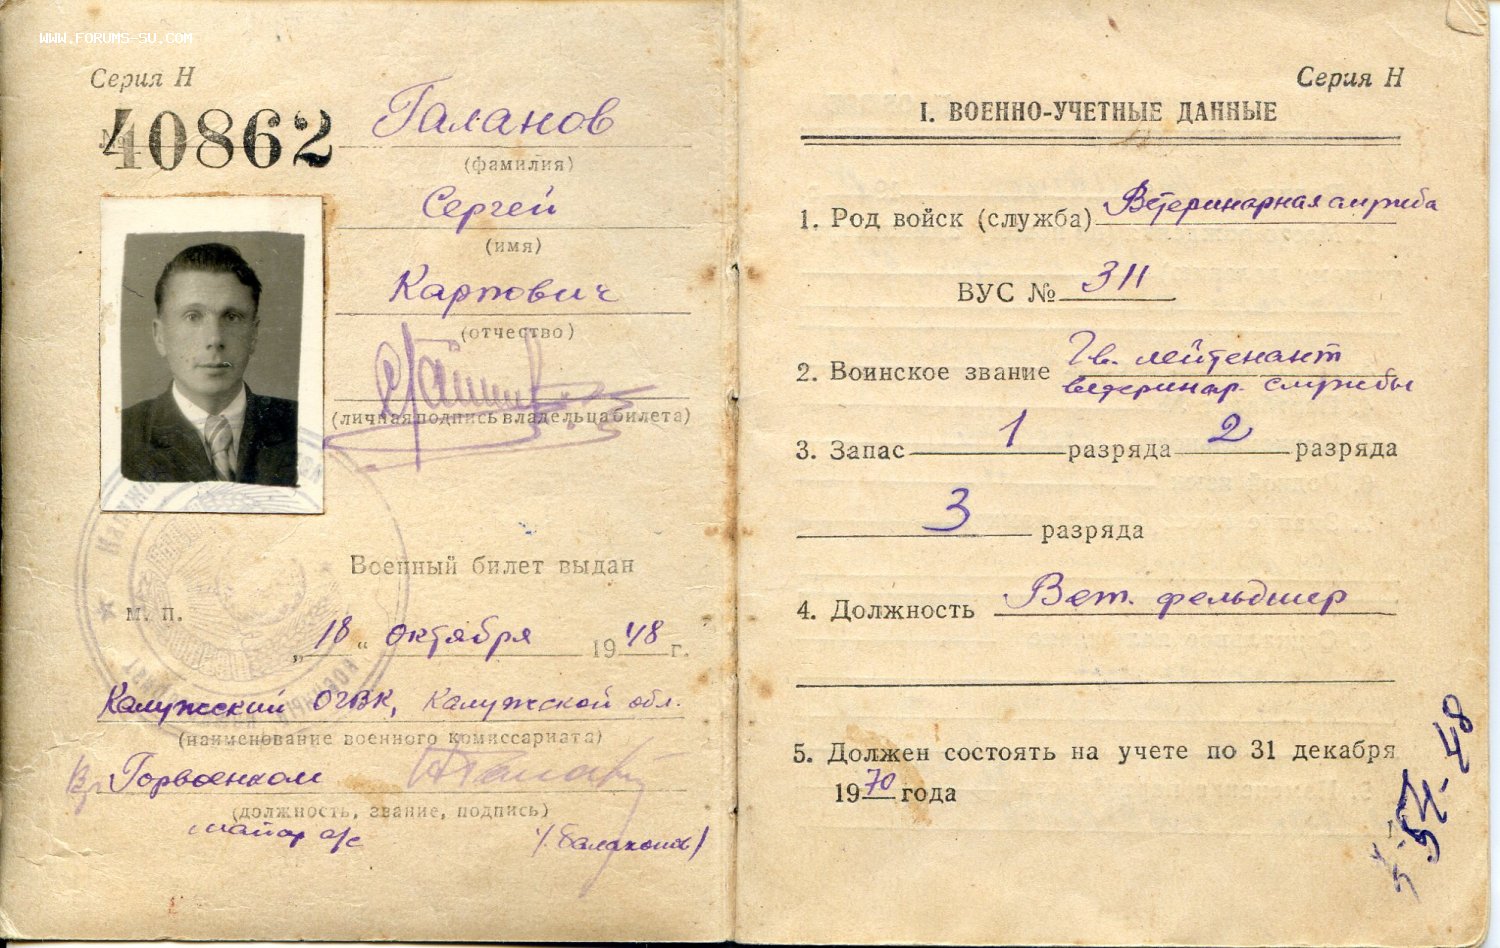 WWW.FORUMS-SU.COM
Серия Н
№ 40862
Галанов
(фамилия)
Сергей
(имя)
Карпович
(отчество)
(личная подпись владельца билета)
Военный билет выдан
М. П.
„18“ октября 1948 г.
Калужский ОГВК, Калужской обл.
(наименование военного комиссариата)
Вр. Горвоенком
(должность, звание, подпись)
майор а/с /Балакона/
Серия Н
I. ВОЕННО-УЧЕТНЫЕ ДАННЫЕ
1. Род войск (служба) Ветеринарная служба
ВУС № 311
2. Воинское звание Гв. лейтенант
ветеринар. службы
3. Запас 1 разряда 2 разряда
3 разряда
4. Должность Вет. фельдшер
5. Должен состоять на учете по 31 декабря
1970 года